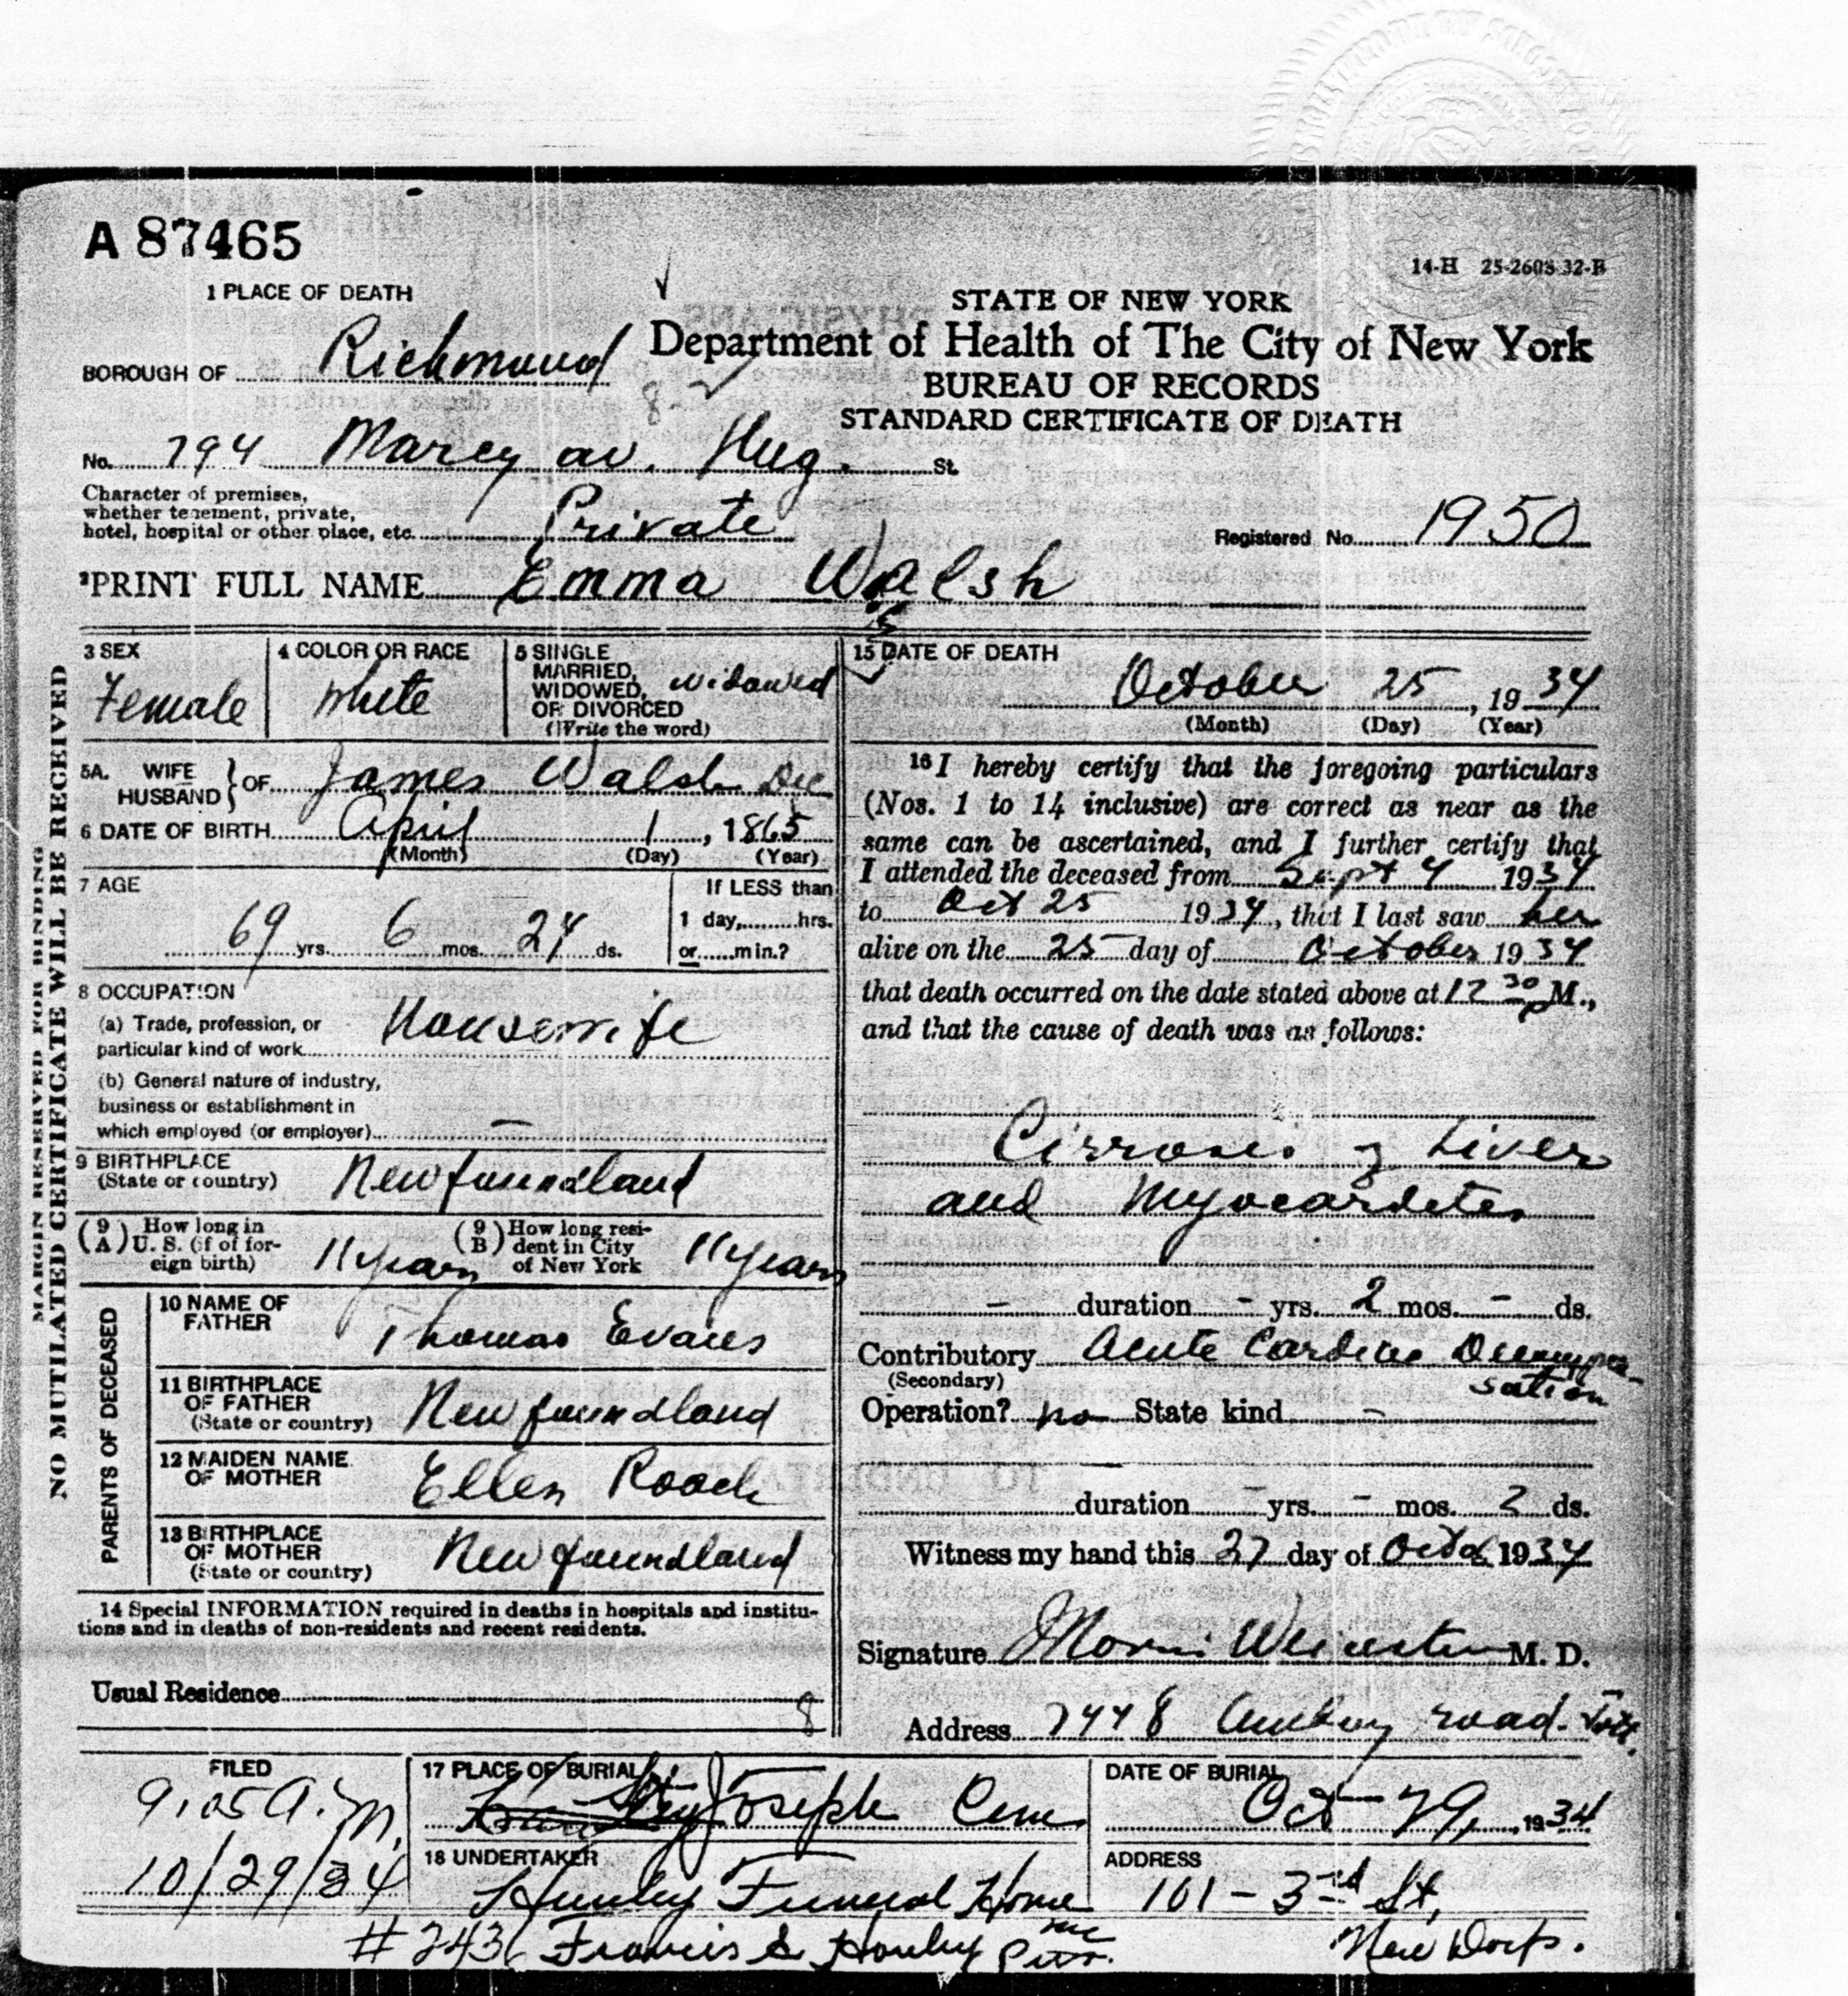 A 87465
14-H 25-2608-32-B
1 PLACE OF DEATH
STATE OF NEW YORK
Department of Health of The City of New York
BUREAU OF RECORDS
STANDARD CERTIFICATE OF DEATH
BOROUGH OF Richmond
No. 794 Marcy av. Hug. St.
Character of premises,
whether tenement, private,
hotel, hospital or other place, etc. Private
Registered No. 1950
2 PRINT FULL NAME Emma Walsh
3 SEX
Female
4 COLOR OR RACE
White
5 SINGLE
MARRIED,
WIDOWED, widowed
OR DIVORCED
(Write the word)
5A. WIFE
HUSBAND } OF James Walsh Dec
6 DATE OF BIRTH April 1, 1865
(Month) (Day) (Year)
7 AGE
69 yrs. 6 mos. 24 ds.
If LESS than
1 day, hrs.
or min.?
8 OCCUPATION
(a) Trade, profession, or
particular kind of work Housewife
(b) General nature of industry,
business or establishment in
which employed (or employer) —
9 BIRTHPLACE
(State or country) Newfoundland
(9A) How long in
U. S. (if of for-
eign birth) 11 years
(9B) How long resi-
dent in City
of New York 11 years
PARENTS OF DECEASED
10 NAME OF
FATHER Thomas Evans
11 BIRTHPLACE
OF FATHER
(State or country) Newfoundland
12 MAIDEN NAME
OF MOTHER Ellen Roach
13 BIRTHPLACE
OF MOTHER
(State or country) Newfoundland
14 Special INFORMATION required in deaths in hospitals and institu-
tions and in deaths of non-residents and recent residents.
Usual Residence
8
15 DATE OF DEATH
October 25, 1934
(Month) (Day) (Year)
16 I hereby certify that the foregoing particulars
(Nos. 1 to 14 inclusive) are correct as near as the
same can be ascertained, and I further certify that
I attended the deceased from Sept 4 1934
to Oct 25 1934, that I last saw her
alive on the 25 day of October 1934
that death occurred on the date stated above at 12 30 P M.,
and that the cause of death was as follows:
Cirrosis of Liver
and Myocardites
— duration - yrs. 2 mos. - ds.
Contributory Acute Cardiac Decompen-
(Secondary) sation
Operation? no State kind —
duration - yrs. - mos. 2 ds.
Witness my hand this 27 day of Octob 1934
Signature Morris M. D.
Address Amboy road. Tott.
FILED
9.05 A.M.
10/29/34
17 PLACE OF BURIAL
St. Joseph Cem
DATE OF BURIAL
Oct 29, 1934
18 UNDERTAKER
Hanley Funeral Home Inc
ADDRESS
101 - 3rd St,
New Dorp.
#2436 Francis S Hanley
MARGIN RESERVED FOR BINDING
NO MUTILATED CERTIFICATE WILL BE RECEIVED